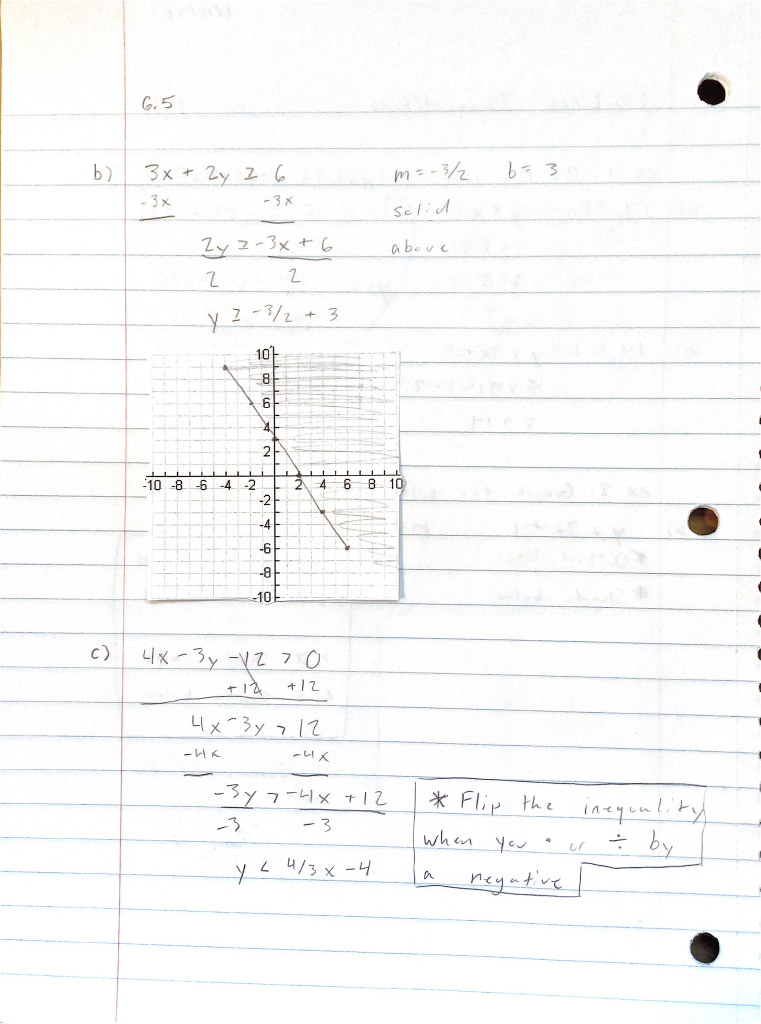 6.5
b) 3x + 2y ≥ 6 m = -3/2 b = 3
-3x -3x solid
2y ≥ -3x + 6 above
2 2
y ≥ -3/2 + 3
10
8
6
4
2
-10 -8 -6 -4 -2 2 4 6 8 10
-2
-4
-6
-8
-10
c) 4x - 3y - 12 > 0
+12 +12
4x - 3y > 12
-4x -4x
-3y > -4x + 12 * Flip the inequality
-3 -3 when you • or ÷ by
y < 4/3 x - 4 a negative